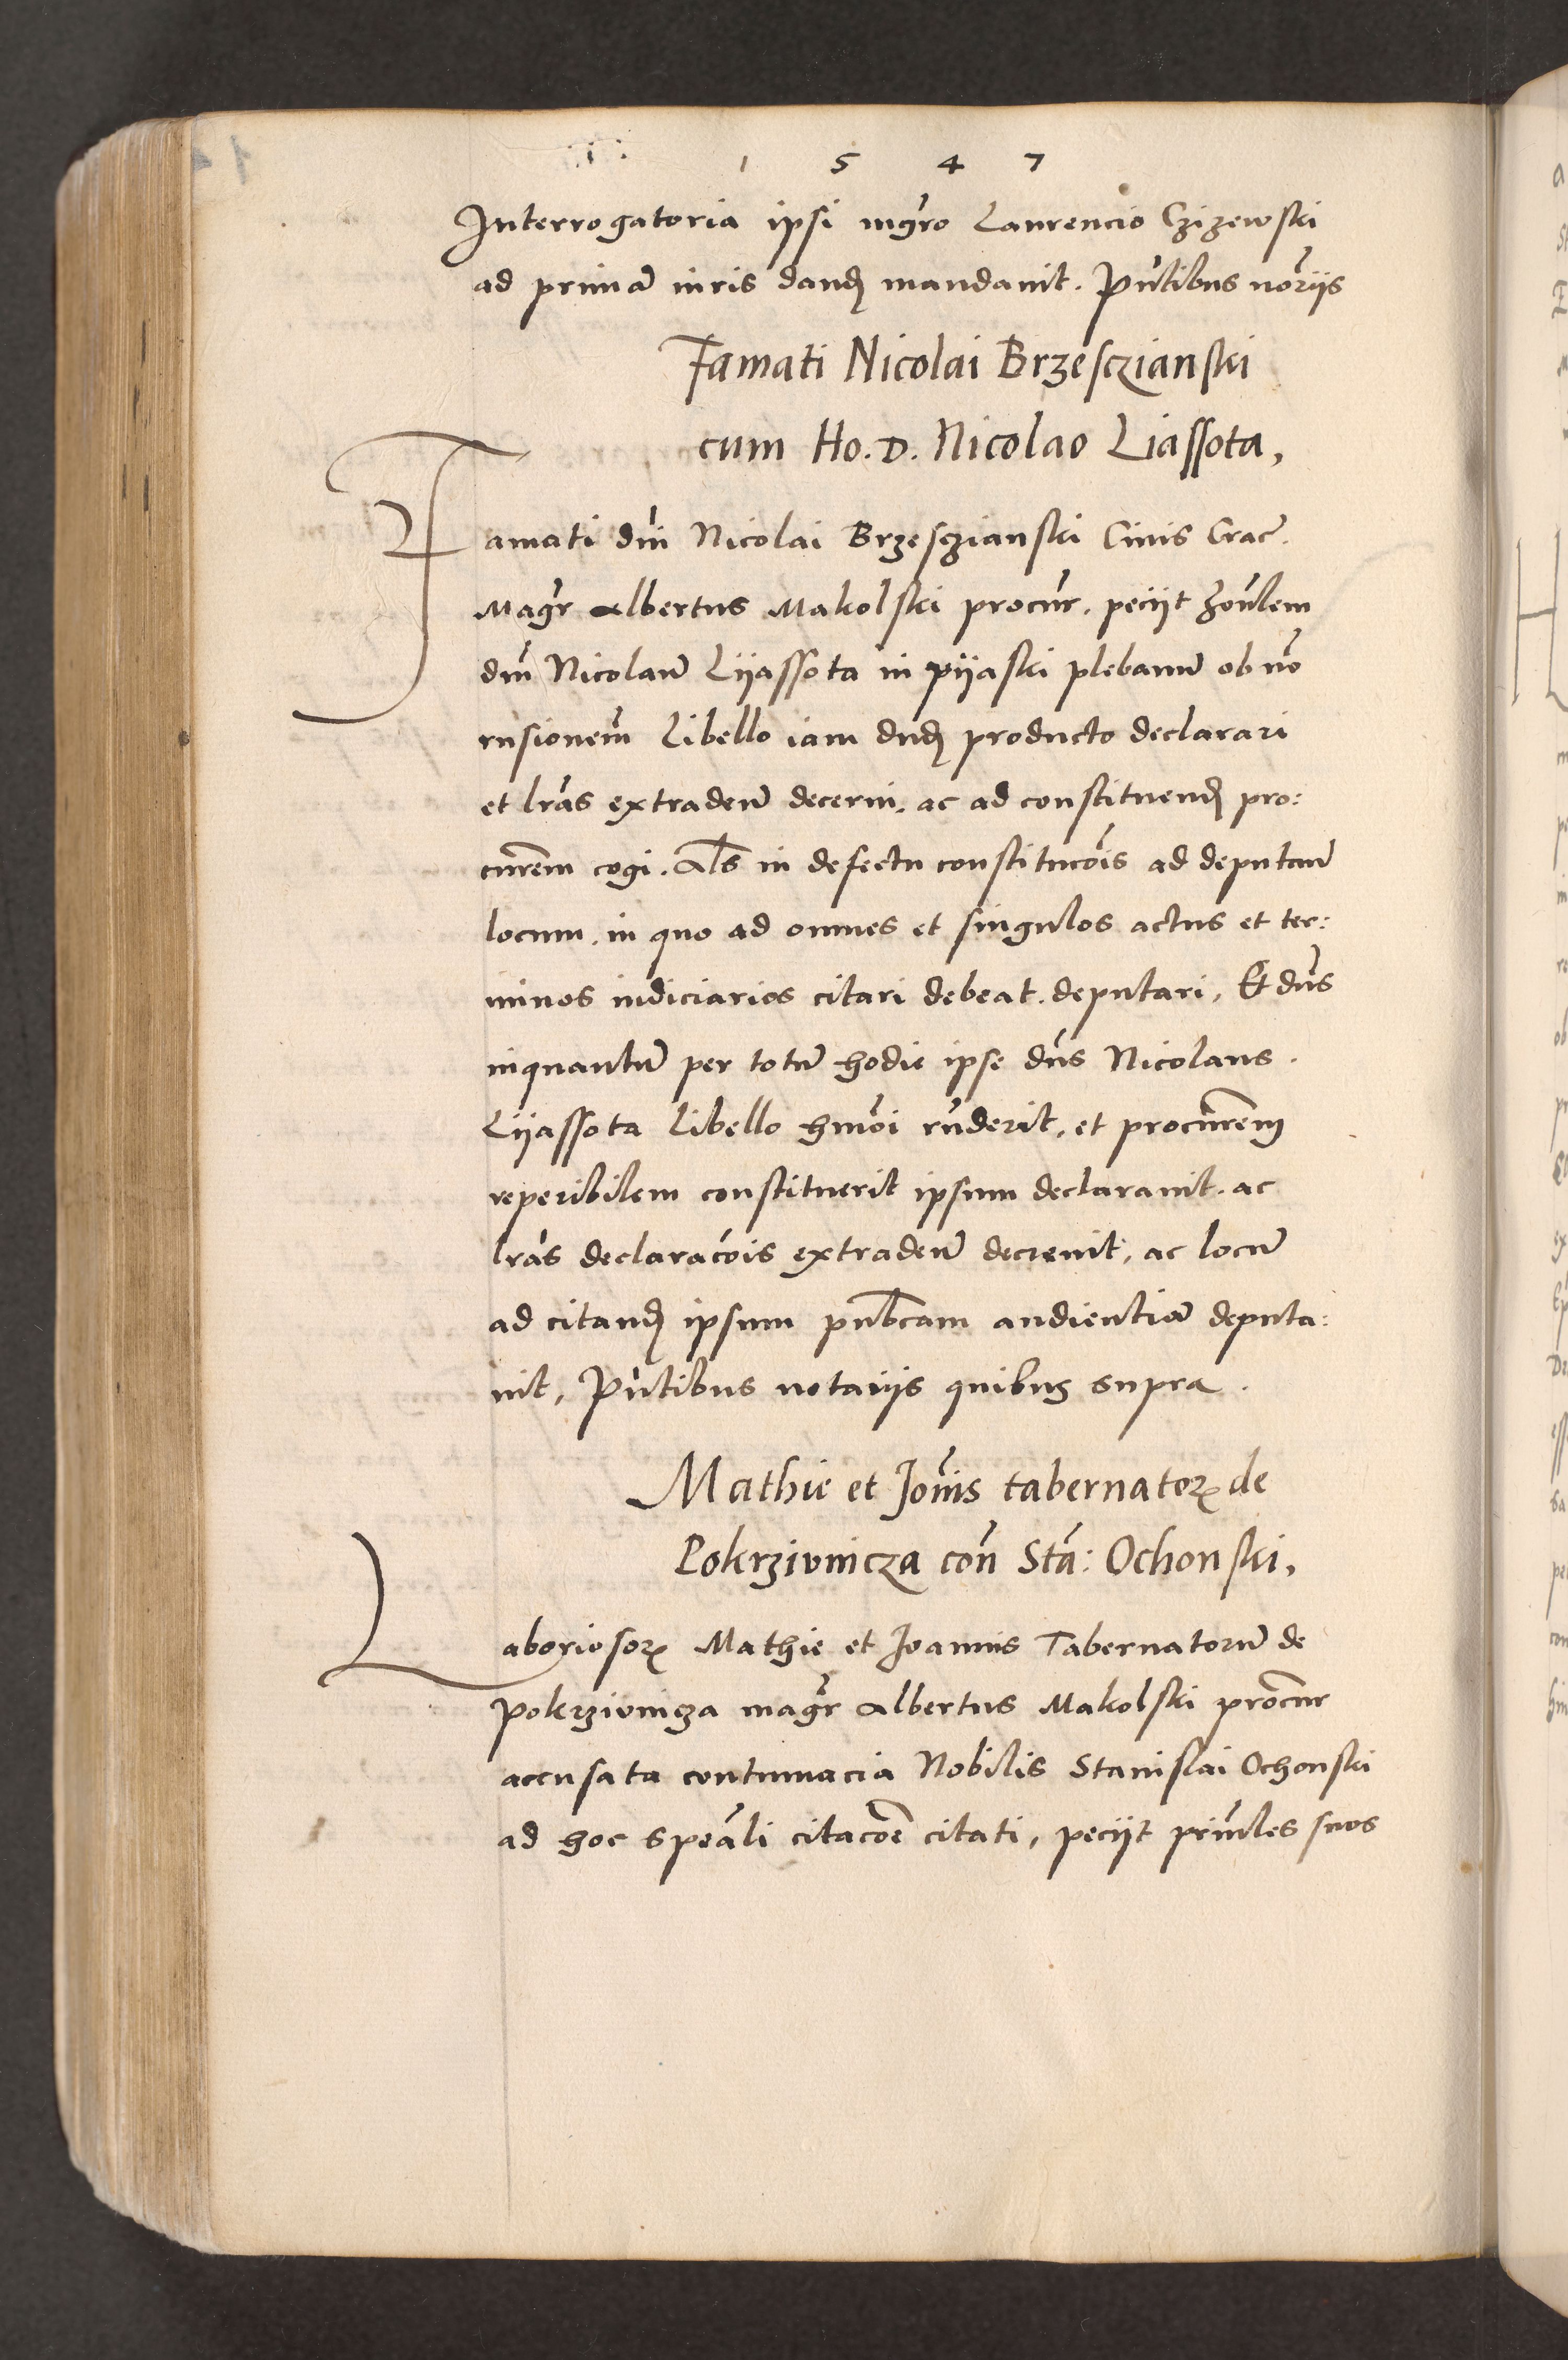 1 5 4 7
Interrogatoria ipsi mgro Laurencio Czizewski
ad primã iuris dand mandauit. Pñtibus noriis
Famati Nicolai Brzesczianski
cum Ho. D. Nicolao Liassota,
Famati dñi Nicolai Brzesczianski Ciuis Crac̃.
Magr Albertus Makolski procur. peciit honlem
dñm Nicolaũ Lyassota in pyaski plebanũ ob nõ
rnsionem̃ Libello iam dud producto declarari
et lras extradeñ decerni, ac ad constituend pro:
curem cogi. Als in defectu constitucõis ad deputanũ
locum, in quo ad omnes et singulos actus et ter:
minos iudiciarios citari debeat. deputari, Et dñs
inquantũ per totũ hodie ipse dñs Nicolaus.
Lyassota Libello hmõi rñderit, et procurem
reperibilem constituerit ipsum declarauit. ac
lras declaracõis extradeñ decreuit, ac locũ
ad citand ipsum publcam audientiã deputa:
uit, Pñtibus notariis quibus supra.
Mathie et Joñis tabernatorꝝ de
Pokrzivnicza coñ Sta: Ochonski,
Laboriosorꝝ Mathie et Joannis Tabernatorũ de
Pokrzivnicza magr Albertus Makolski procur
accusata contumacia Nobilis Stanislai Ochonski
ad hoc speãli citacõe citati, peciit prinles suos